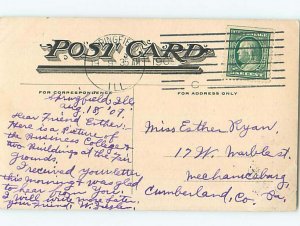 SPRINGFIELD
ILL.
POST CARD
FOR CORRESPONDENCE
FOR ADDRESS ONLY
Springfield Ills
Aug 18, '09.
Dear Friend Esther:-
Here is a Picture of
the Business College &
two Buildings at the Fair
Grounds.
I received your letter
this morning & was glad
to hear from you.
I will write more later.
Your Friend, W.
Miss Esther Ryan,
17 W. Marble st.
Mechanicsburg,
Cumberland, Co. Pa.